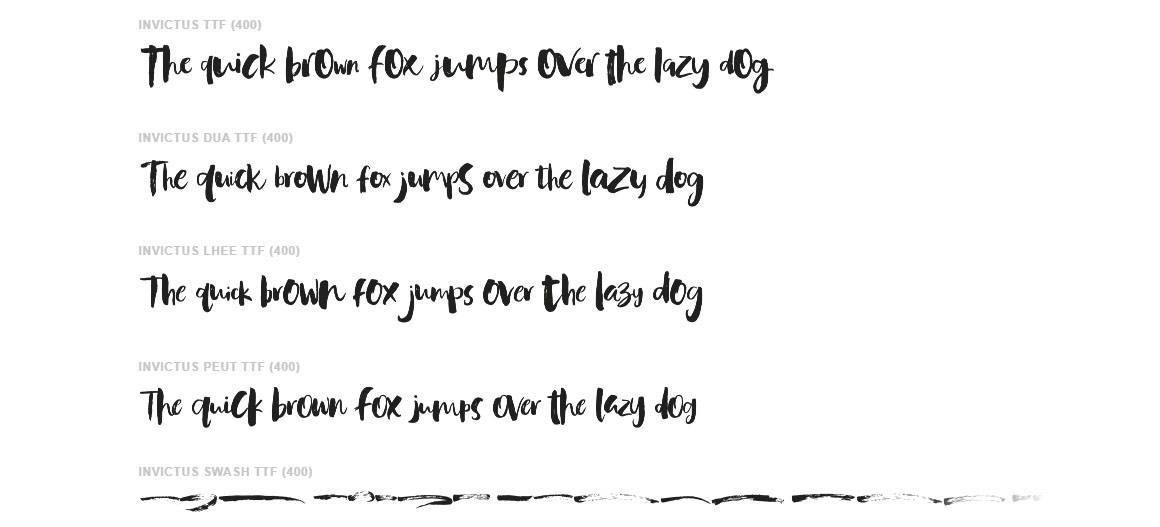 INVICTUS TTF (400)
The quick brown fox jumps over the lazy dog
INVICTUS DUA TTF (400)
The quick brown fox jumps over the lazy dog
INVICTUS LHEE TTF (400)
The quick brown fox jumps over the lazy dog
INVICTUS PEUT TTF (400)
The quick brown fox jumps over the lazy dog
INVICTUS SWASH TTF (400)